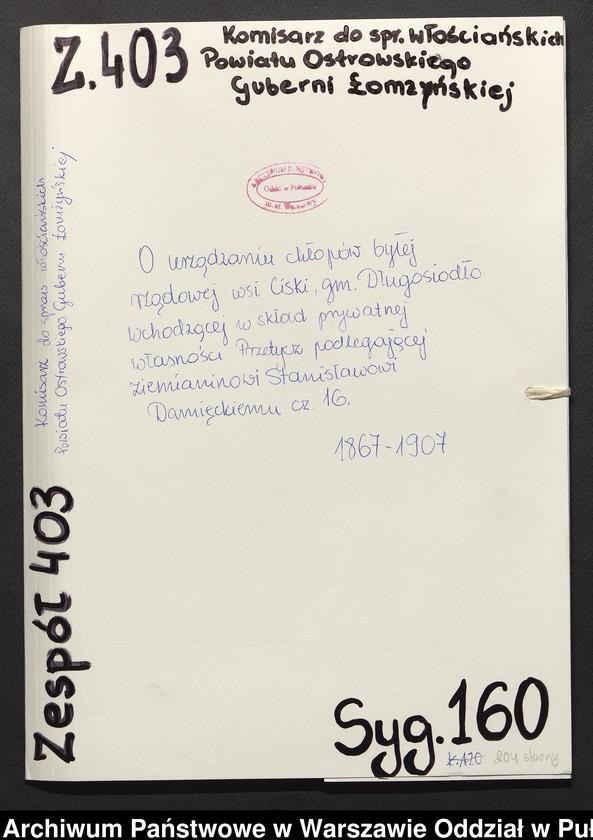 Z.403
Komisarz do spr. włościańskich
Powiatu Ostrowskiego
Guberni Łomżyńskiej
ARCHIWUM PAŃSTWOWE
Oddz. w Pułtusku
m. st. Warszawy
O urządzaniu chłopów byłej
rządowej wsi Ciski, gm. Długosiodło
wchodzącej w skład prywatnej
własności Przetycz podlegającej
ziemianinowi Stanisławowi
Damięckiemu cz. 16.
1867-1907
Komisarz do spraw włościańskich
Powiatu Ostrowskiego Guberni Łomżyńskiej
Zespół 403
Syg.160
K.A20 204 strony
Archiwum Państwowe w Warszawie Oddział w Puł